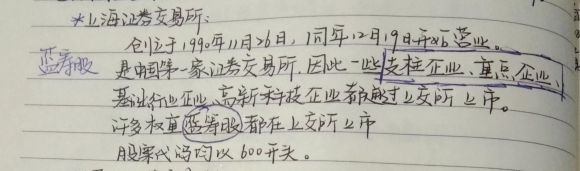 *上海证券交易所:
创立于1990年11月26日,同年12月19日开始营业。
蓝筹股 是中国第一家证券交易所.因此一些支柱企业、重点企业、
基础行业企业、高新科技企业都通过上交所上市。
许多权重蓝筹股都在上交所上市
股票代码均以600开头。